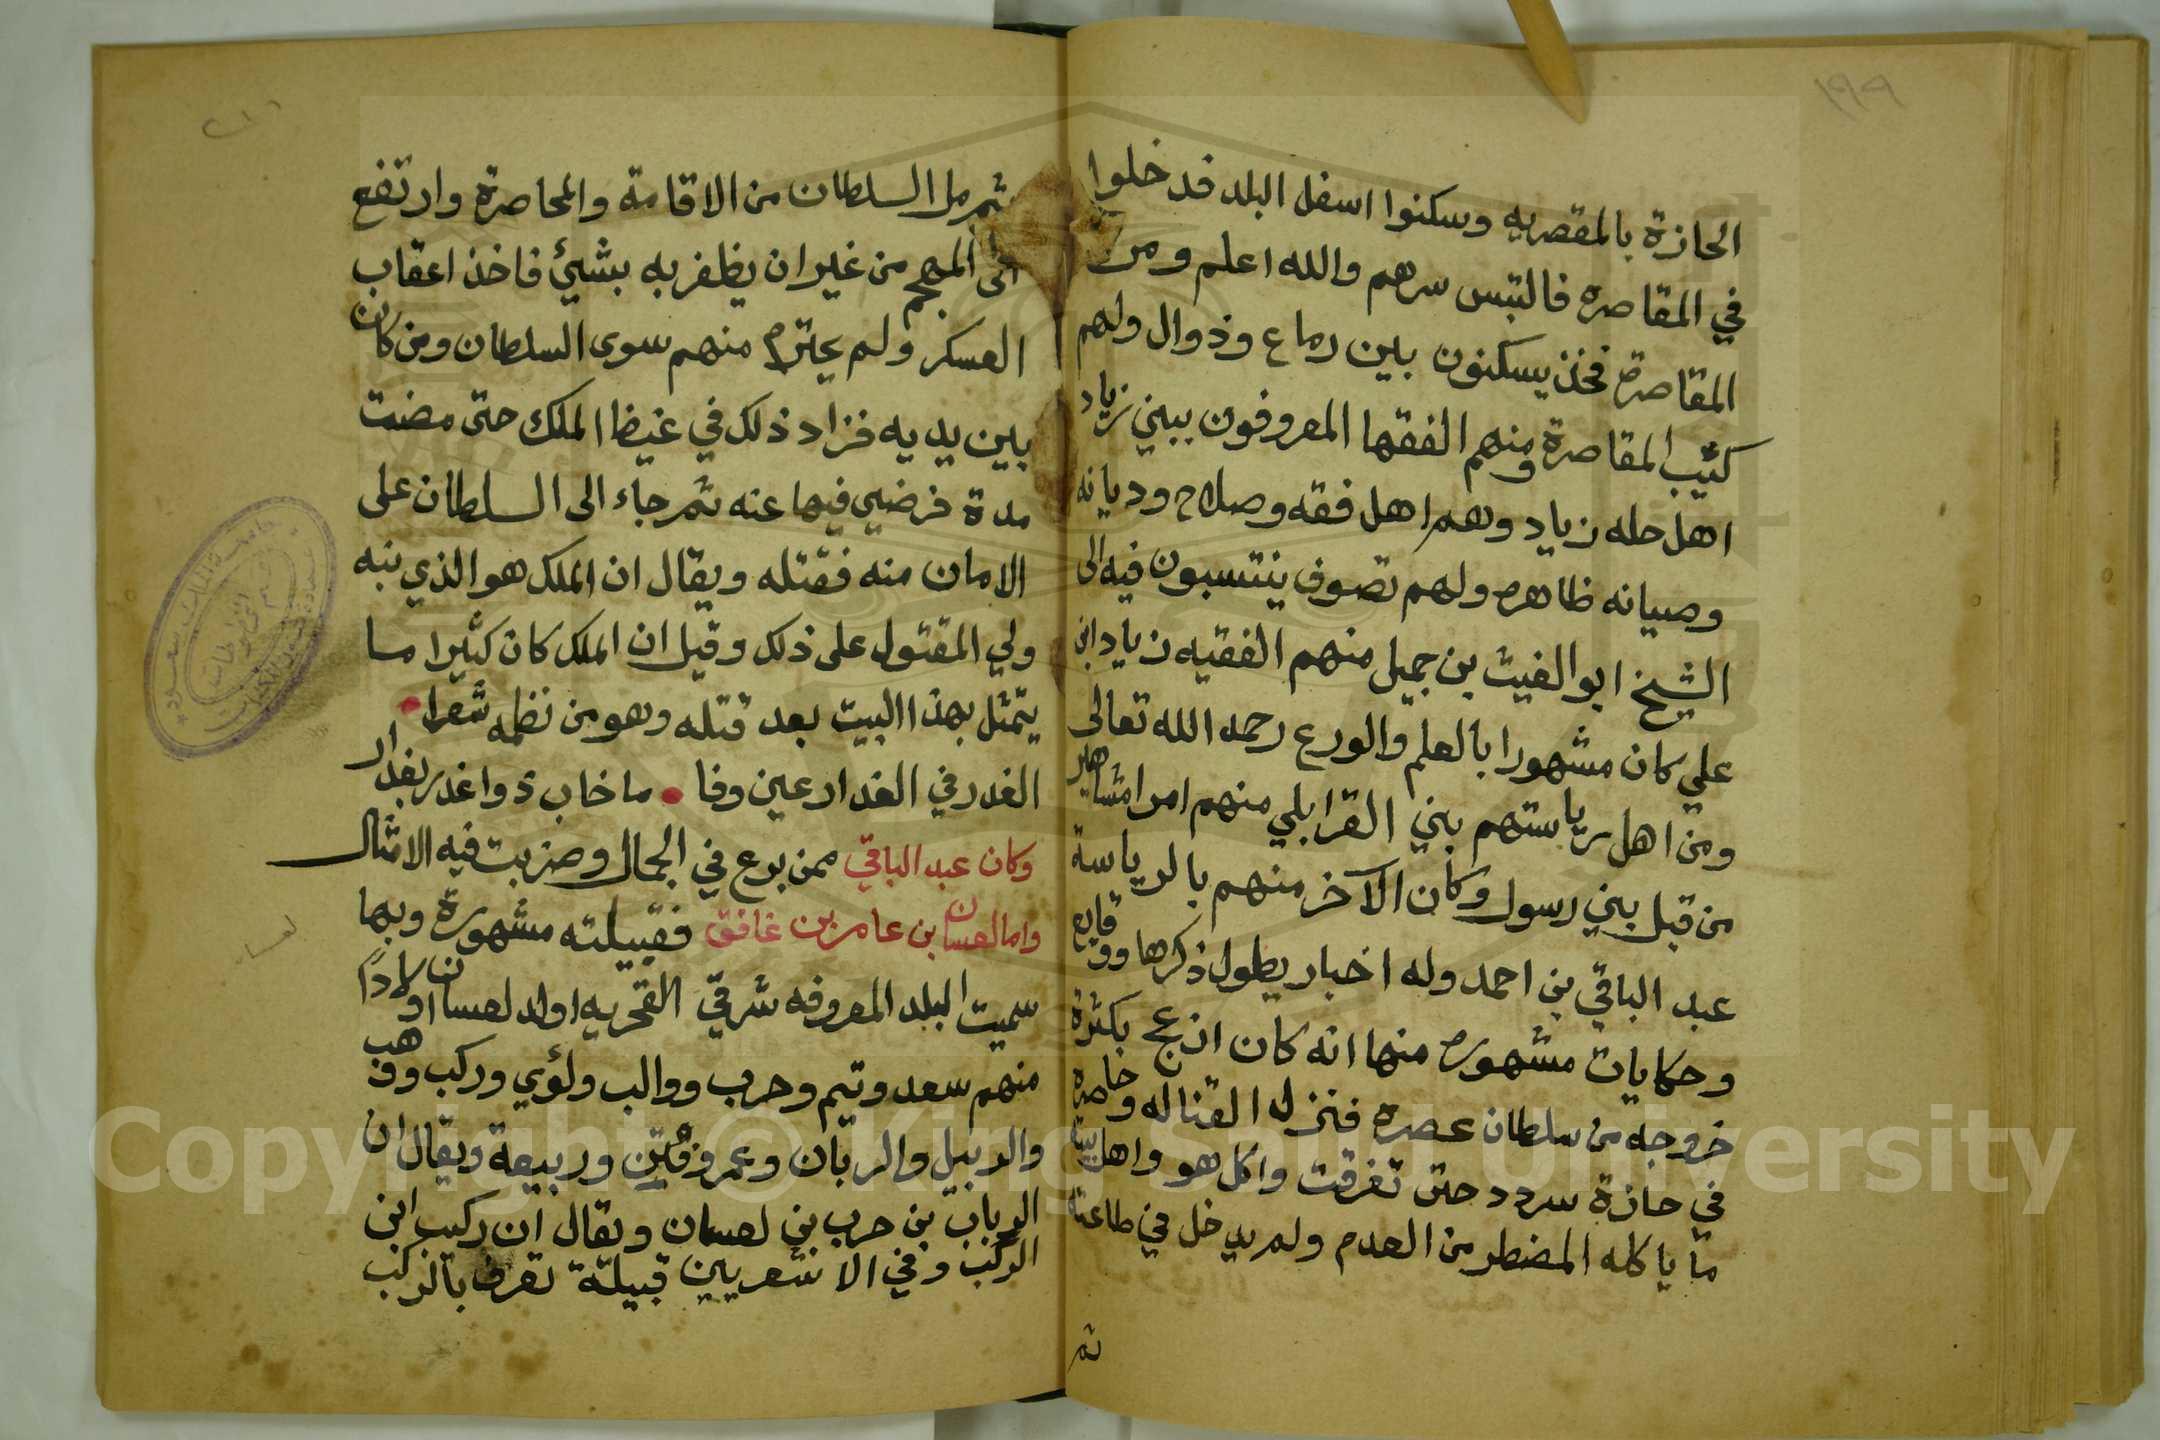 ١٩٩
الحازة بالمقصريه وسكنوا اسفل البلد فدخلوا
في المقاصره فالتبس سرهم والله اعلم ومن
المقاصرة فخذ يسكنون بين رماع وذوال ولهم
كثيب المقاصرة ومنهم الفقها المعروفون ببني زياد
اهل حله زياد وهم اهل فقه وصلاح وديانه
وصيانه ظاهره ولهم تصوف ينتسبون فيه الى
الشيخ ابو الغيث بن جميل منهم الفقيه زياد ابن
علي كان مشهورا بالعلم والورع رحمه الله تعالى
ومن اهل رياستهم بني القرابلي منهم امرا مشاهير
من قبل بني رسول وكان الآخر منهم بالرياسة
عبد الباقي بن احمد وله اخبار يطول ذكرها ووقايع
وحكايات مشهوره منها انه كان انزعج بكثرة
خروجه من سلطان عصره فنزل القتاله وحاصره
في حازة سردد حتى تفرقت واكل هو واهل بيته
ما ياكله المضطر من العدم ولم يدخل في طاعته
ثم
ثم مل السلطان من الاقامة والمحاصرة وارتفع
الى المهجم من غير ان يظفر به بشيئ فاخذ اعقاب
العسكر ولم يحترم منهم سوى السلطان ومن كان
بين يديه فزاد ذلك في غيظ الملك حتى مضت
مدة فرضيي فيها عنه ثم جاء الى السلطان على
الامان منه فقتله ويقال ان الملك هو الذي نبه
ولي المقتول على ذلك وقيل ان الملك كان كثيرا ما
يتمثل بهذا البيت بعد قتله وهو من نظمه شعرا
الغدر في الغدار عين وفا ما خاب ذو اغدر بغدار
وكان عبد الباقي ممن برع في الجمال وضربت فيه الامثال
واما لعسان بن عامر بن غافق فقبيلته مشهورة وبها
سميت البلد المعروفه شرقي القحريه اولاد لعسان اولادًا
منهم سعد وتيم وحرب ووالب ولؤي وركب ووهب
والدبيل والربان وعمرو وقين وربيعة ويقال ان
الرباب بن حرب بن لعسان ويقال ان ركيب ابن
الركب وفي الاشعريين قبيلة تعرف بالركب
لعسان